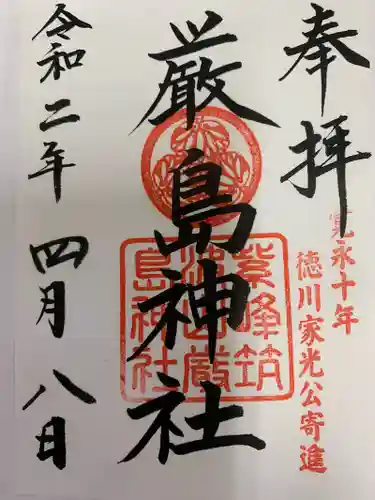 奉拝
寛永十年
徳川家光公寄進
厳島神社
紫峰筑
波山厳
島神社
令和二年 四月 八日